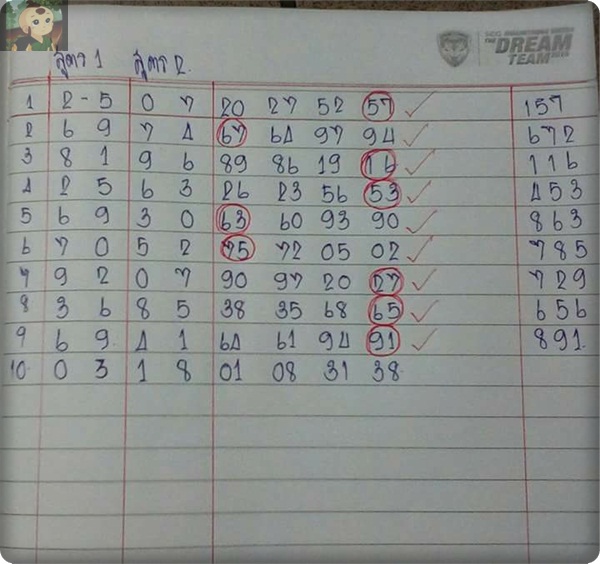 THE DREAM TEAM
สูตร 1 สูตร 2.
1 2-5 0 7 20 27 52 57 157
2 6 9 7 4 67 64 97 94 672
3 8 1 9 6 89 86 19 16 116
4 2 5 6 3 26 23 56 53 453
5 6 9 3 0 63 60 93 90 863
6 7 0 5 2 75 72 05 02 785
7 9 2 0 7 90 97 20 27 729
8 3 6 8 5 38 35 68 65 656
9 6 9. 4 1 64 61 94 91 891.
10. 0 3 1 8 01 08 31 38